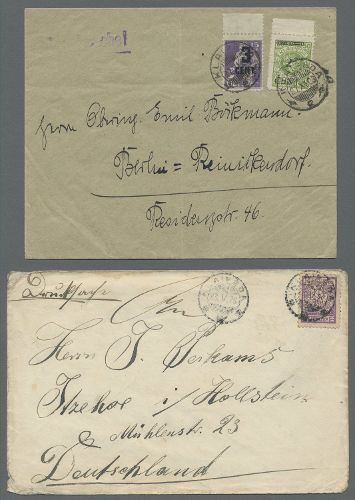 3
CENT
Herrn Obering. Emil Börkmann.
Berlin=Reinickendorf.
Residenzstr. 46.
KLAIPEDA
Drucksache
An
Herrn J.
Itzehoe i/Hollstein
Mühlenstr. 23
Deutschland